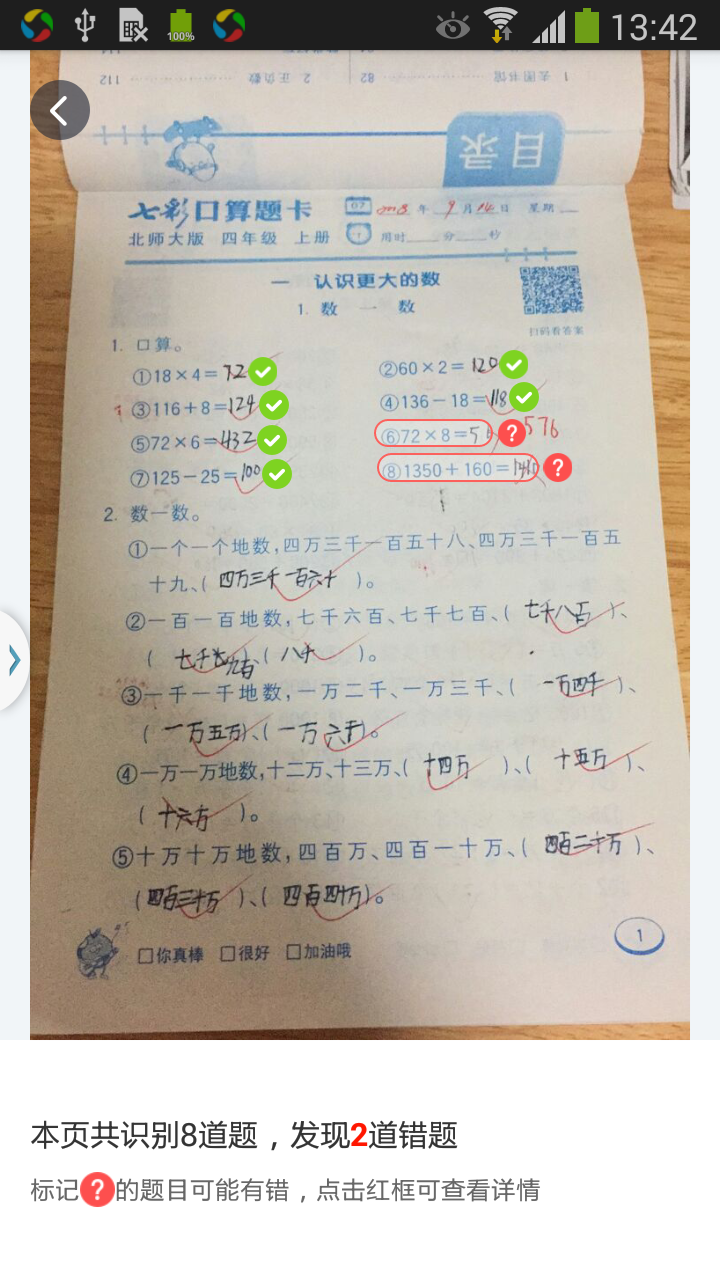 100%
13:42
112 2 正负数 82 1 去图书馆
目录
七彩口算题卡 07 2018年 9月14日 星期
北师大版 四年级 上册 用时 分 秒
一 认识更大的数
1. 数一数
扫码看答案
1. 口算。
①18×4=72 ②60×2=120
③116+8=124 ④136-18=118
⑤72×6=432 ⑥72×8=5 576
⑦125-25=100 ⑧1350+160=
2. 数一数。
①一个一个地数,四万三千一百五十八、四万三千一百五
十九、(四万三千一百六十)。
②一百一百地数,七千六百、七千七百、(七千八百)、
(七千九百)、(八千)。
③一千一千地数,一万二千、一万三千、(一万四千)、
(一万五万)、(一万六千)。
④一万一万地数,十二万、十三万、(十四万)、(十五万)、
(十六万)。
⑤十万十万地数,四百万、四百一十万、(四百二十万)、
(四百三十万)、(四百四十万)。
□你真棒 □很好 □加油哦
1
本页共识别8道题，发现2道错题
标记?的题目可能有错，点击红框可查看详情